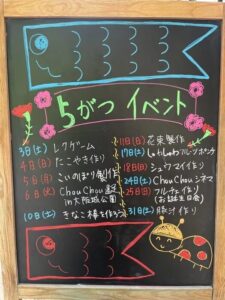 5がつ イベント
3日(土) レクゲーム
4日(日) たこやき作り
5日(月) こいのぼり製作
6日(火) ChouChou遠足
in 大阪城公園
10日(土) きなこ棒を作ろう
11日(日) 花束製作
17日(土) しゅわしゅわフルーツポンチ
18日(日) シュウマイ作り
24日(土) ChouChouシネマ
25日(日) フルーチェ作り
(お誕生日会)
31日(土) 豚汁作り